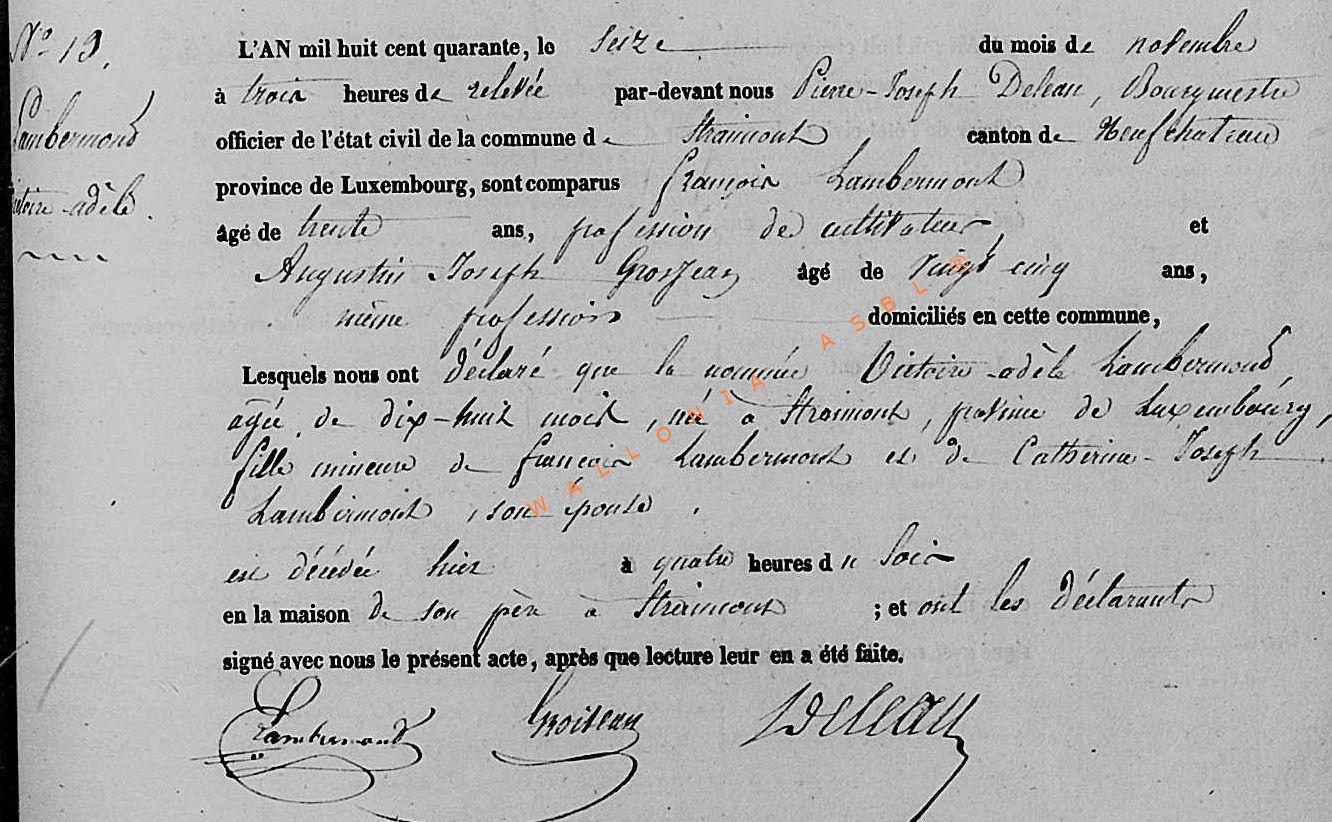 N° 19.
Lambermond
Victoire adèle.
L'AN mil huit cent quarante, le seize du mois de novembre
à trois heures de relevée par-devant nous Pierre-Joseph Deleau, Bourgmestre
officier de l'état civil de la commune de Straimont canton de Neufchateau
province de Luxembourg, sont comparus François Lambermont
âgé de trente ans, profession de cultivateur, et
Augustin Joseph Grosjean âgé de vingt cinq ans,
même profession domiciliés en cette commune,
Lesquels nous ont déclaré que la nommée Victoire-adèle Lambermond,
agée de dix-huit mois, née à Straimont, province de Luxembourg,
fille mineure de françois Lambermont et de Catherine-Joseph
Lambermont, son épouse.
est décédée hier à quatre heures du Soir
en la maison de son père à Straimont ; et ont les déclarants
signé avec nous le présent acte, après que lecture leur en a été faite.
Lambermond Groisean Deleau
WALLONIA ASBL ®